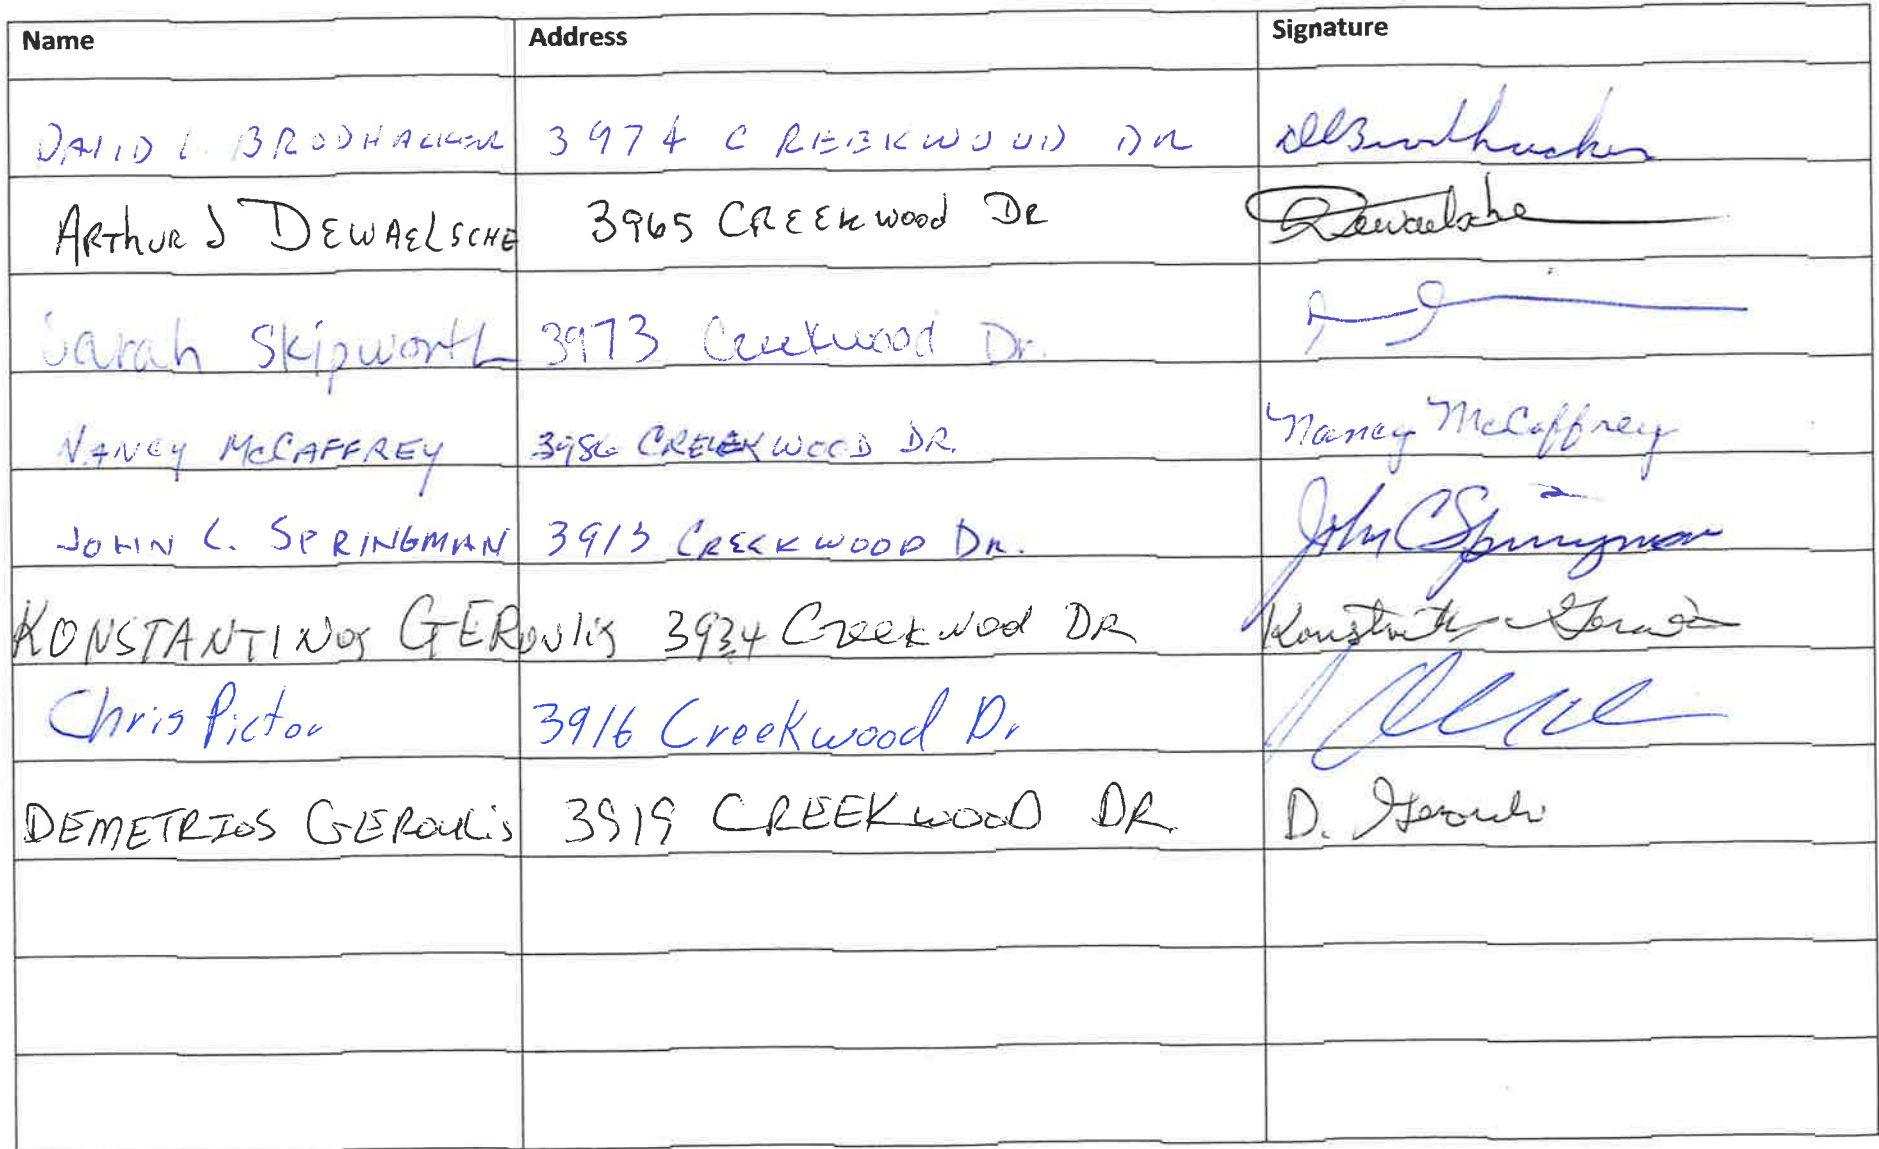 Name Address Signature
DAVID L. BRODHACKER 3974 CREEKWOOD DR DLBrodhacker
ARThUR J DEWAELSCHE 3965 CREEKwood DR Dewaelsche
Sarah Skipworth 3973 Creekwood Dr.
NANCY McCAFFREY 3986 CREEKWOOD DR. Nancy McCaffrey
JOHN C. SPRINGMAN 3913 CREEKWOOD DR. John C Springman
KONSTANTINOS GEROULIS 3934 Creekwod DR
Chris Pictor 3916 Creekwood Dr
DEMETRIOS GEROULiS 3919 CREEKWOOD DR. D. Geroulis